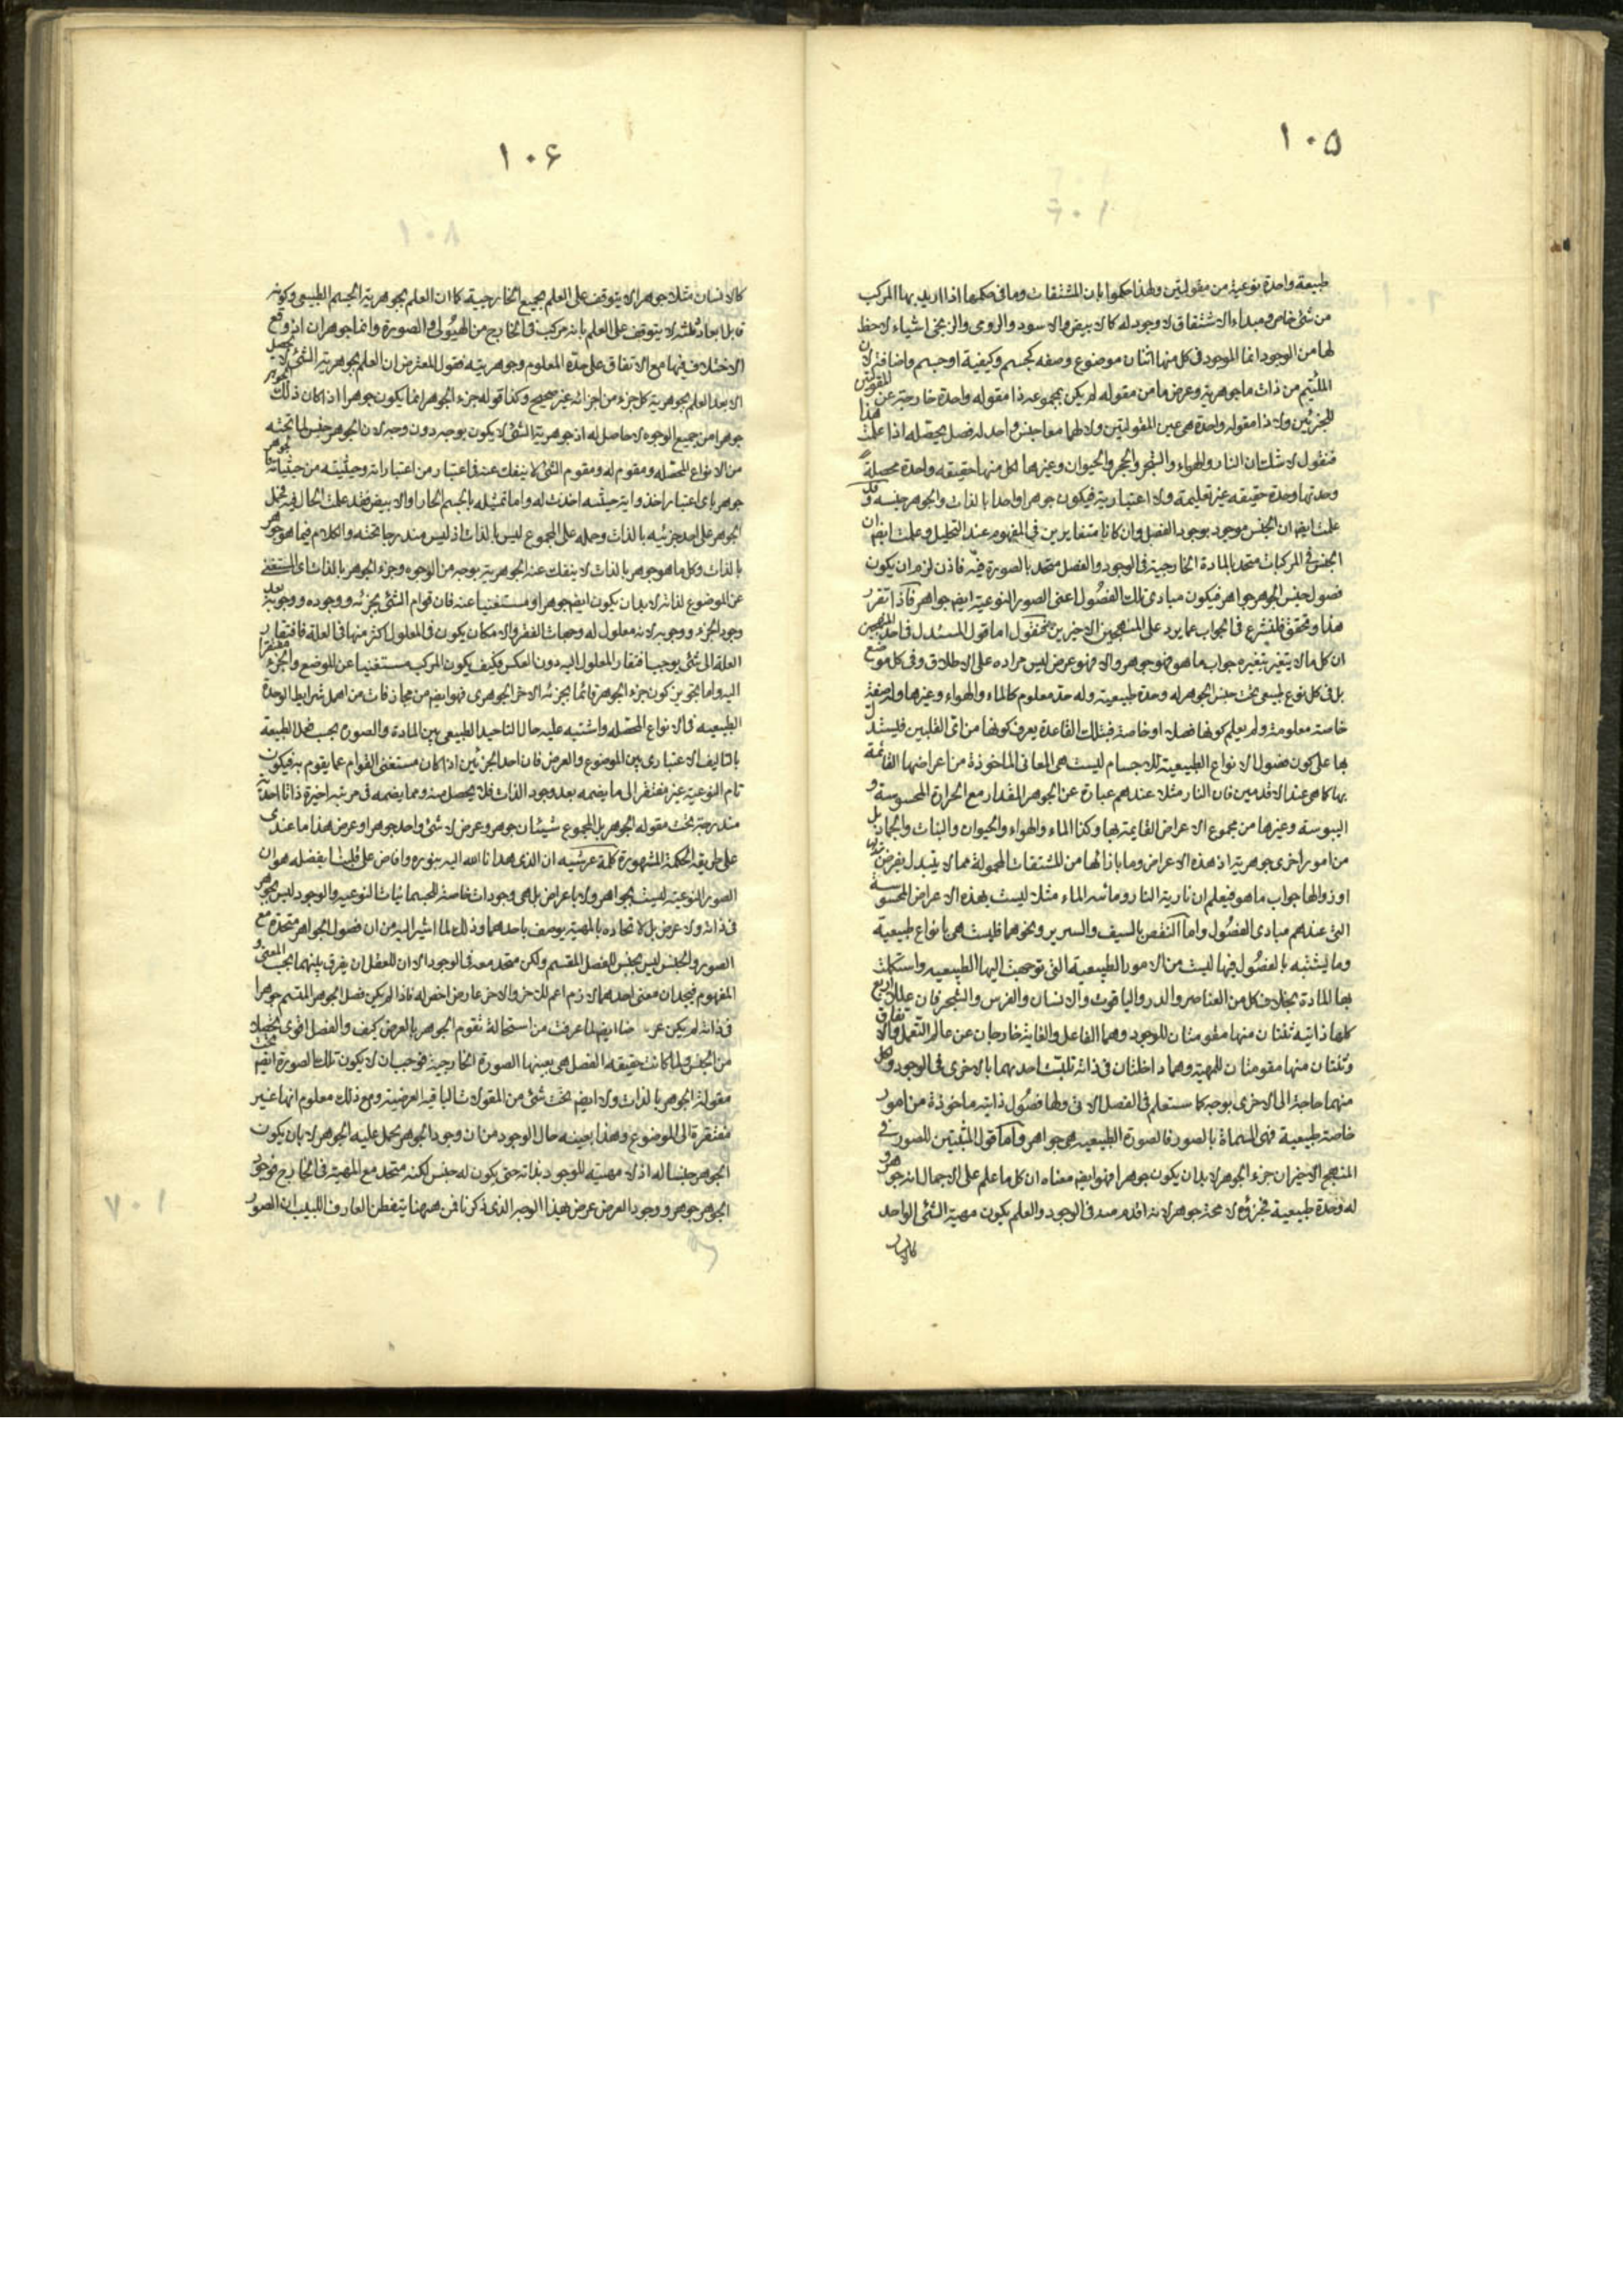 ١٠۵
طبيعة واحدة نوعية من مقولتين ولهذا حكموا بان المشتقات وما فى حكمها اذا اريد بها المركب
من شئ خاص ومبداء الاشتقاق لا وجود له كالابيض والاسود والرومى والزنجى اشياء لاحظ
لها من الوجود انما الموجود فى كل منها اثنان موضوع وصفه كجسم وكيفية او جسم واضافة لان
الملتئم من ذات ما جوهرية وعرض ما من مقوله لم يكن بمجموعه ذا مقوله واحدة خارجة عن المقولتين
للجزئين ولا ذا مقولة واحدة هى عين المقولتين ولا لهما معا جنس واحد له فصل يحصله اذا علمت هذا
فنقول لا شك ان النار والهواء والشجر والحجر والحيوان وغيرهما لكل منها حقيقه واحدة محصلة
وحدتها وحدة حقيقه غير تعليمية ولا اعتبارية فيكون جوهرا واحدا بالذات والجوهر جنسه وقد
علمت ايضا ان الجنس موجود بوجود الفصل وان كانا متغايرين فى المفهوم عند التحليل وعلمت ايضا ان
الجنس فى المركبات متحد بالمادة الخارجية فى الوجود والفصل متحد بالصورة فيه فاذن لزم ان يكون
فصول جنس الجوهر جواهر فيكون مبادى تلك الفصول اعنى الصور النوعية ايضا جواهر فاذا تقرر
هذا وتحقق فلنشرع فى الجواب عما يرد على المنهجين الاخيرين فنقول اما قول المستدل فى احد المنهجين
ان كل ما لا يتغير بتغيره جواب ما هو فهو جوهر والا فهو عرض ليس مراده على الاطلاق وفى كل موضع
بل فى كل نوع طبيعى تحت جنس الجوهر له وحدة طبيعية وله حد معلوم كالماء والهواء وغيرها وله صفة
خاصة معلومة ولم يعلم كونها فصلا او خاصة فبتلك القاعدة يعرف كونها من اى القلبين فليستدل
بها على كون فصول الانواع الطبيعية للاجسام ليست هى المعانى الماخوذة من اعراضها القائمة
بها كما هى عند الاقدمين فان النار مثلا عندهم عبارة عن الجوهر المقدار مع الحرارة المحسوسة و
اليبوسة وغيرها من مجموع الاعراض القايمة بها وكذا الماء والهواء والحيوان والنبات والجماد بل
من امور اخرى جوهرية اذ هذه الاعراض وما بازائها من المشتقات المحمولة مما لا يتبدل بفرض
او زوالها جواب ما هو فيعلم ان نارية النار ومائية الماء مثلا ليست بهذه الاعراض المحسوسة
التى عندهم مبادى الفصول واما النقض بالسيف والسرير ونحوهما فليست هى بانواع طبيعية
وما يشتبه بالفصول فيها ليست من الامور الطبيعية التى توجهت اليها الطبيعيه واستكملت
بها المادة بخلاف كل من العناصر والدر والياقوت والانسان والفرس والشجر فان عللا اربع
كلها ذاتيه ثنتان منها مقومتان للوجود وهما الفاعل والغاية خارجان عن عالم التعمل والاتفاق
وثنتان منها مقومتان للمهية وهما داخلتان فى ذاته تلبست احديهما بالاخرى فى الوجود ولكل
منهما حاجة الى الاخرى بوجه كما ستعلم فى الفصل الاتى ولها فصول ذاتيه ماخوذة من امور
خاصة طبيعية فهى المسماة بالصور فالصورة الطبيعيه هى جواهر واما قول المثبتين للصور فى
المنهج الاخير ان جزء الجوهر لا بد ان يكون جوهرا فهو ايضا معناه ان كل ما علم على الاجمال انه جوهر و
له وحدة طبيعية فجزؤه لا محة جوهر لانه اقدم منه فى الوجود والعلم بكون مهية الشئ الواحد
كالانسان
١٠۶
كالانسان مثلا جوهرا لا يتوقف على العلم بجميع الخارجية كما ان العلم بجوهرية الجسم الطبيعى وكونه
قابل ابعاد ثلثه لا يتوقف على العلم بانه مركب فى الخارج من الهيولى والصورة وانما جوهران اذ وقع
الاختلاف فيها مع الاتفاق على حدة المعلوم وجوهريته فقول المعترض ان العلم بجوهرية الشئ لا يحصل
الا بعد العلم بجوهرية كل جزء من اجزائه غير صحيح وكذا قوله جزء الجوهر انما يكون جوهرا اذا كان ذلك الجوهر
جوهرا من جميع الوجوه لا حاصل له اذ جوهرية الشئ لا يكون بوجه دون وجه لان الجوهر جنس لما تحته
من الانواع المحصله ومقوم له ومقوم الشئ لا ينفك عنه فى اعتبار من اعتباراته وحيثيته من حيثياته
جوهر باى اعتبار اخذ واية حيثيه اخذت له واما تمثيله بالجسم الحار او الابيض فقد علمت الحال فيه حمل
الجوهر على احد جزئيه بالذات وحمله على المجموع ليس بالذات اذ ليس مندرجا تحته والكلام فيما هو جوهر
بالذات وكل ما هو جوهر بالذات لا ينفك عنه الجوهرية بوجه من الوجوه وجزء الجوهر بالذات اى المستغنى
عن الموضوع لذاته لا بد ان يكون ايضا جوهرا ومستغنيا عنه فان قوام الشئ بجزئه ووجوده ووجوبه بعد
وجود الجزء ووجوبه لانه معلول له وجهات الفقر والامكان يكون فى المعلول اكثر منها فى العلة فافتقار
العلة الى شئ يوجب افتقار المعلول اليه دون العكس وكيف يكون المركب مستغنيا عن الموضع والجزء مفتقرا
اليه واما تجويز كون جزء الجوهر قائما بجزئه الاخر الجوهرى فهو ايضا من مجازفات من اهمل شرايط الوحدة
الطبيعيه فى الانواع المحصله واشتبه عليه حال التاحيد الطبيعى بين المادة والصورة بحسب هذا الطبيعة
بالتاليف الاعتبارى بين الموضوع والعرض فان احد الجزئين اذا كان مستغنى القوام عما يقوم به فيكون
تام النوعية غير مفتقر الى ما يضمه بعد وجود الذات فلا يحصل منه ومما يضمه فى مرتبة اخيرة ذاتا احدية
مندرجة تحت مقوله الجوهر بل المجموع شيئان جوهر وعرض لا شئ واحد جوهر او عرض هذا ما عندى
على طريقه الحكمة المشهورة كلمة عرشيه ان الذى هدانا الله اليه بنوره وافاض على قلبنا بفضله هو ان
الصور النوعية ليست بجواهر ولا باعراض بل هى وجودات خاصة للجسمانيات النوعيه والوجود ليس بجوهر
فى ذاته ولا عرض بل لاتحاده بالمهية يوصف باحدهما وذلك لما اشير اليه من ان فصول الجواهر متحدة مع
الصور والجنس ليس بجنس للفصل المقسم ولكن متحد معه فى الوجود الا ان للعقل ان يفرق بينهما بحسب المعنى و
المفهوم فيجد ان معنى احدهما لازم اعم للاخر والاخر عارض اخص له فاذا لم يكن فصل الجوهر المقسم جوهرا
فى ذاته لم يكن عرضا ايضا لما عرفت من استحالة تقوم الجوهر بالعرض كيف والفصل اقوى تحصلا
من الجنس ولما كانت حقيقه الفصل هى بعينها الصورة الخارجية فوجب ان لا يكون تلك الصورة ايضا تحت
مقولة الجوهر بالذات ولا ايضا تحت شئ من المقولات الباقيه العرضية ومع ذلك معلوم انها غير
مفتقرة الى الموضوع وهذا بعينه حال الوجود من ان وجود الجوهر يحمل عليه الجوهر لا بان يكون
الجوهر جنسا له اذ لا مهيته للوجود بذاته حتى يكون له جنس لكنه متحد مع المهية فى الخارج فوجود
الجوهر جوهر ووجود العرض عرض بهذا الوجه الذى ذكرنا فمن ههنا يتفطن العارف اللبيب ان الصور